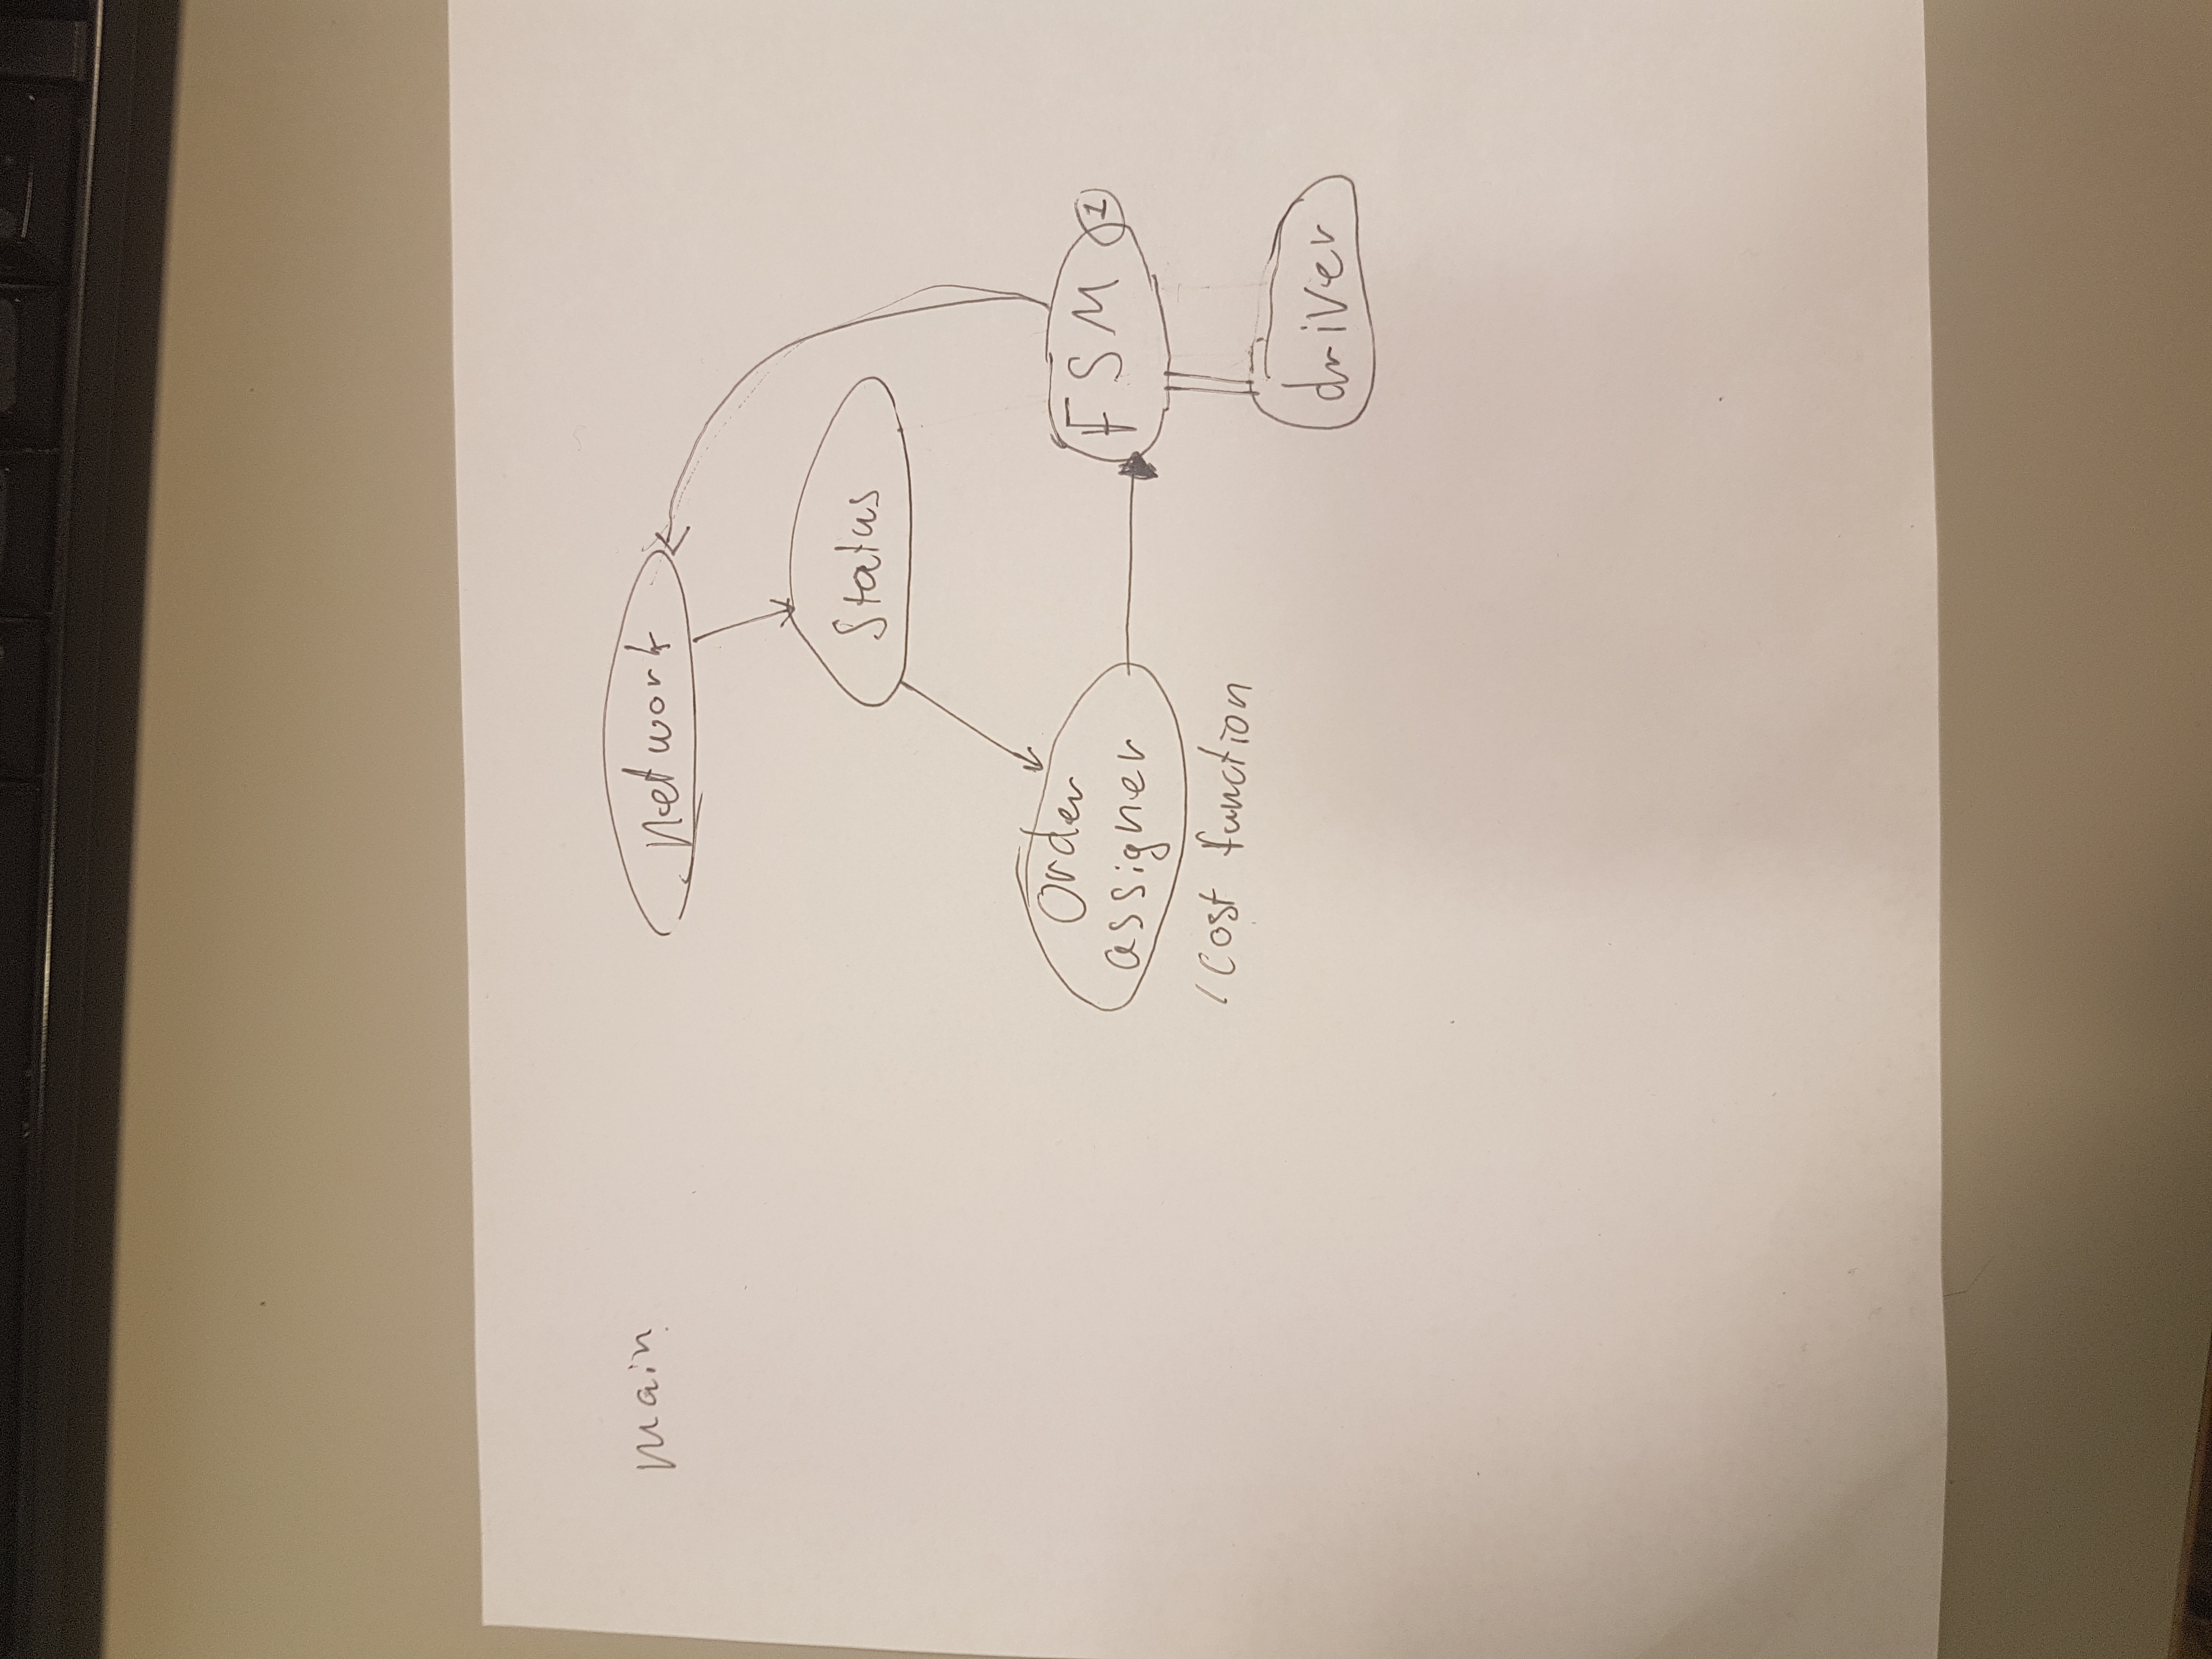 main
Network
Status
Order
assigner
/Cost function
FSM
1
driver